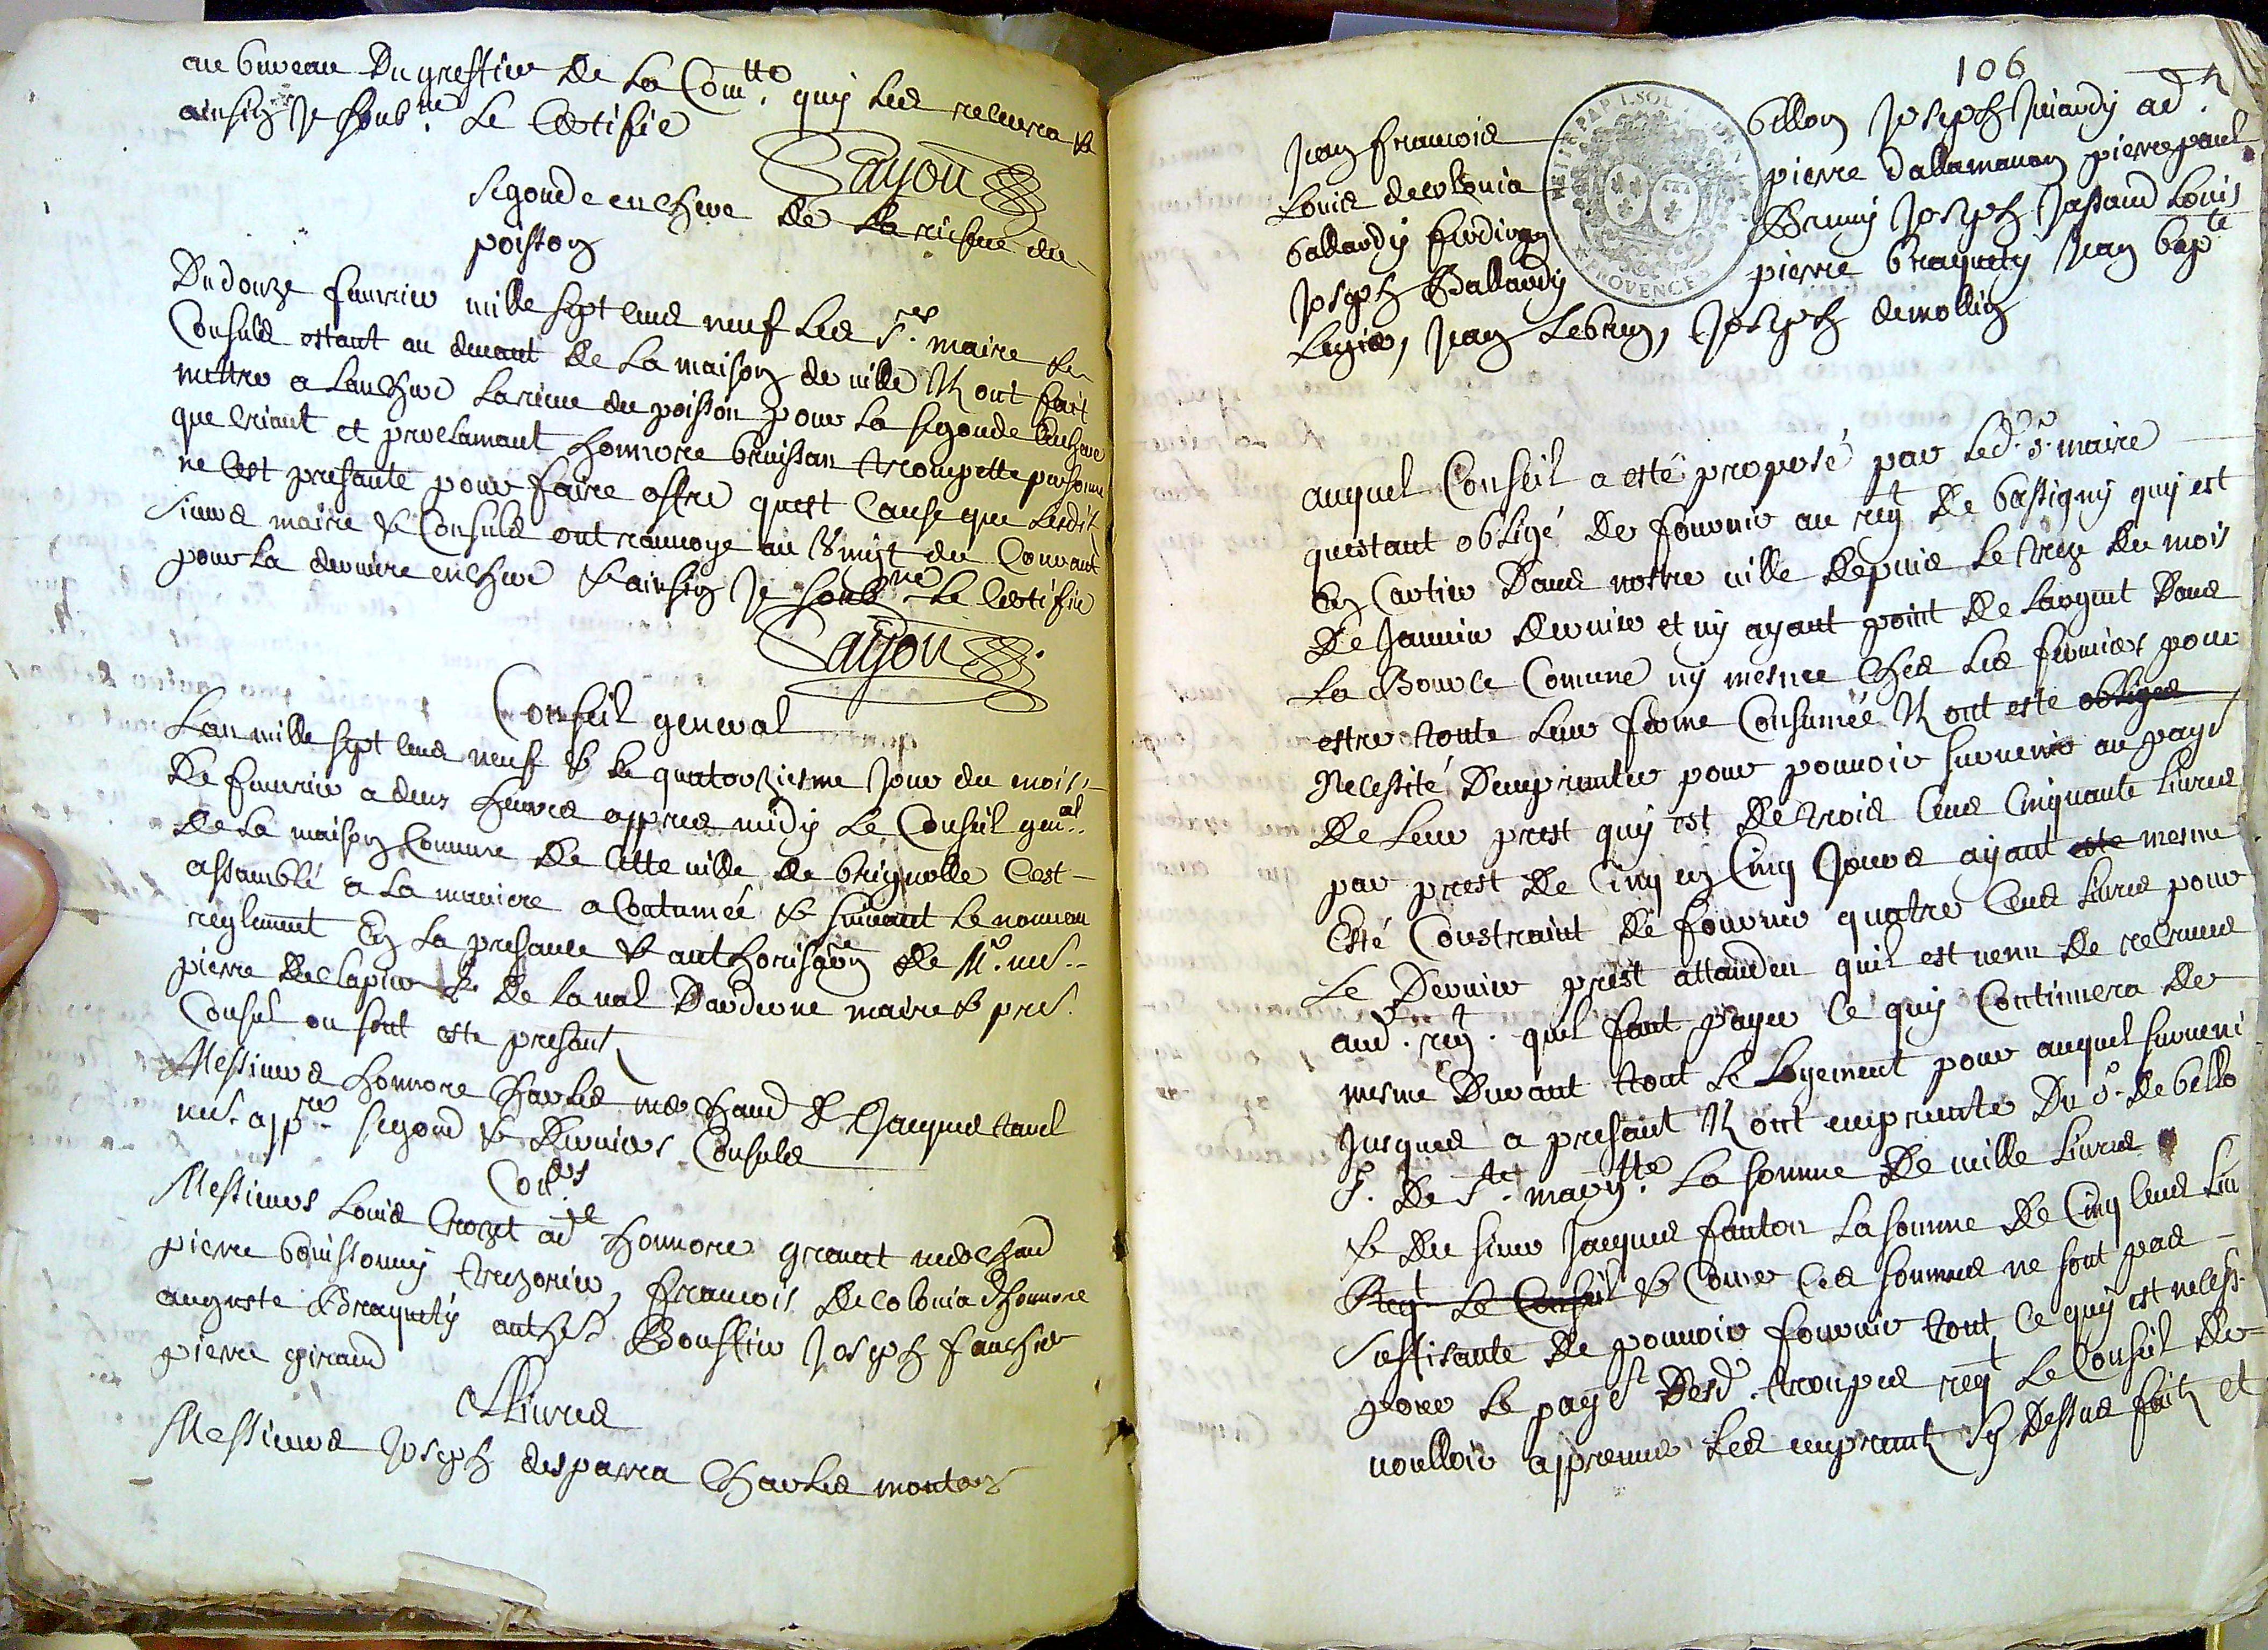 au bureau Du greffier De La Com.tté quy Les recevra &
ainsin Je soub.né Le Certifie
Fayon
segonde enchere de La riesve du
poisson
Du douze fevrier mille sept cens neuf Les s.rs maire &
Consuls estant au devant De La maison de ville Ils ont fait
mettre a Lanchere Larieve du poisson pour La segonde Enchere
que Criant et proclamant honnore bruissan trompette personne
ne Cest presanté pour faire offre quest Cause que Lesdits
sieurs maire & Consuls ont ranvoye au vingt du Courant
pour La derniere enchere & ainsin Je soub.né Le Certifie
Fayon
Conseil general
Lan mille sept cens neuf & Le quatorziesme Jour du mois
De fevrier a deux heures appres midy Le Conseil gen.al
De La maison Comune De Cette ville De brignolle Cest
assamblé a La maniere acoutumée & suivant Le nouveau
reglement En La presance & authorisa.on De M.e mes.
pierre De clapier s.r De Laval Dardenne maire & pre.r
Consul ou sont este presants
Messieurs honnore charles marchand & Jacques tavel
m.e app.re segond & Derniers Consuls
Con.ers
Messieurs Louis Crozet ad.t honnore greaut marchand
pierre bouissonny trezorier, francois De colonia dhonnore
auguste Braquety anth.e Bouffier Joseph fauchier
pierre giraud
Ellieues
Messieurs Joseph desparra charles montois
106
Jean francois billon Joseph Juiaudy ad.t
Louis decolonia pierre dallamanon pierre paul
ballardy ferdinan Brunij Joseph Jassaud Louis
Joseph Ballardy pierre braquety Jean bap.te
Legier, Jean Lebrun, Joseph demollin
MET ET PAP I. SOL
PROVENCE
auquel Conseil a esté proposé par Led. s.r maire
questant obligé De fournir au reg.t De bassigny quy est
En Cartier Dans nostre ville Depuis Le treze Du mois
De Janvier dernier et ny ayant point De Largent Dans
La Bource Comune ny mesme ches Les fermiers pour
estre toute Leur ferme Consumée Ils ont este obliges
Necessité Demprunter pour pouvoir survenir au paye.t
De Leur prest quy est De trois Cens Cinquante Livres
par prest De Cinq en Cinq Jours ayant este mesme
Esté Constraint De fournir quatre Cens Livres pour
Le Dernier prest attandeu quil est venu De recreues
aud. reg.t quil faut payer Ce quy Continuera De
mesme Durant tout Le Logement pour auquel surveni
Jusques a presant Ils ont emprunté Du s.r De bello
s.r De s.te marg.tte La somme De mille Livres
& Du sieur Jacques fanton La somme De Cinq Cens Liv
Req.t Le Conseil & Come Ces sommes ne sont pas
suffisante De pouvoir fournir tout Ce quy est necess.
pour Le paye.t Desd. troupes req.t Le Conseil De
voulloir approuver Les emprunts sy Dessus faits et